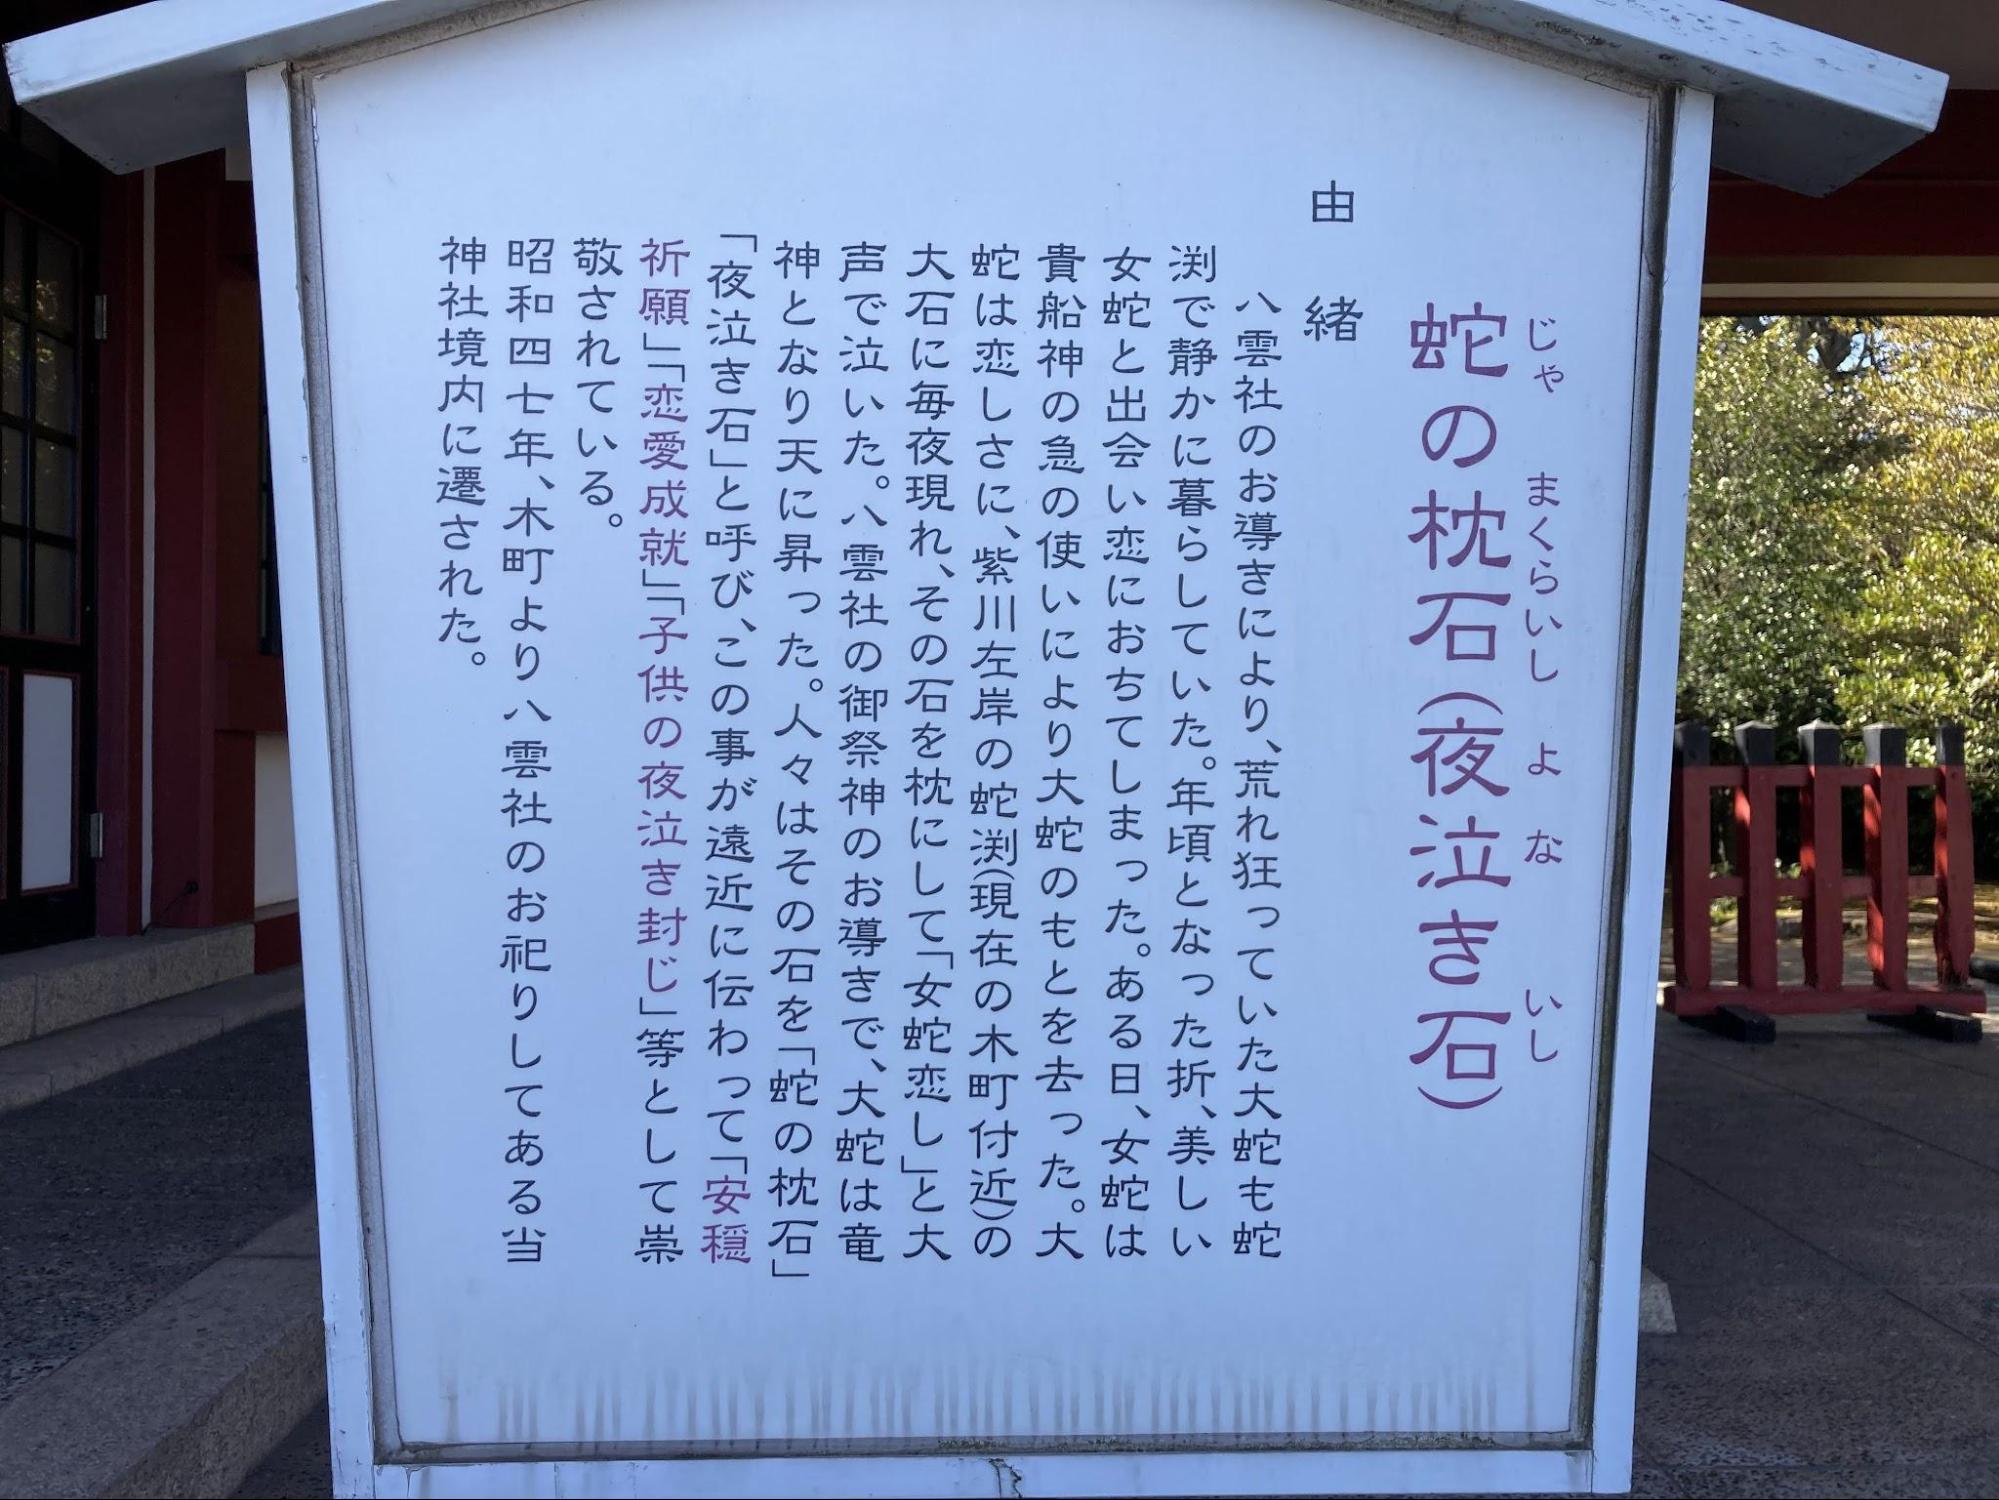 蛇の枕石(夜泣き石)
じゃ まくらいし よ な いし
由緒
八雲社のお導きにより、荒れ狂っていた大蛇も蛇
渕で静かに暮らしていた。年頃となった折、美しい
女蛇と出会い恋におちてしまった。ある日、女蛇は
貴船神の急の使いにより大蛇のもとを去った。大
蛇は恋しさに、紫川左岸の蛇渕(現在の木町付近)の
大石に毎夜現れ、その石を枕にして「女蛇恋し」と大
声で泣いた。八雲社の御祭神のお導きで、大蛇は竜
神となり天に昇った。人々はその石を「蛇の枕石」
「夜泣き石」と呼び、この事が遠近に伝わって「安穏
祈願」「恋愛成就」「子供の夜泣き封じ」等として崇
敬されている。
昭和四七年、木町より八雲社のお祀りしてある当
神社境内に遷された。